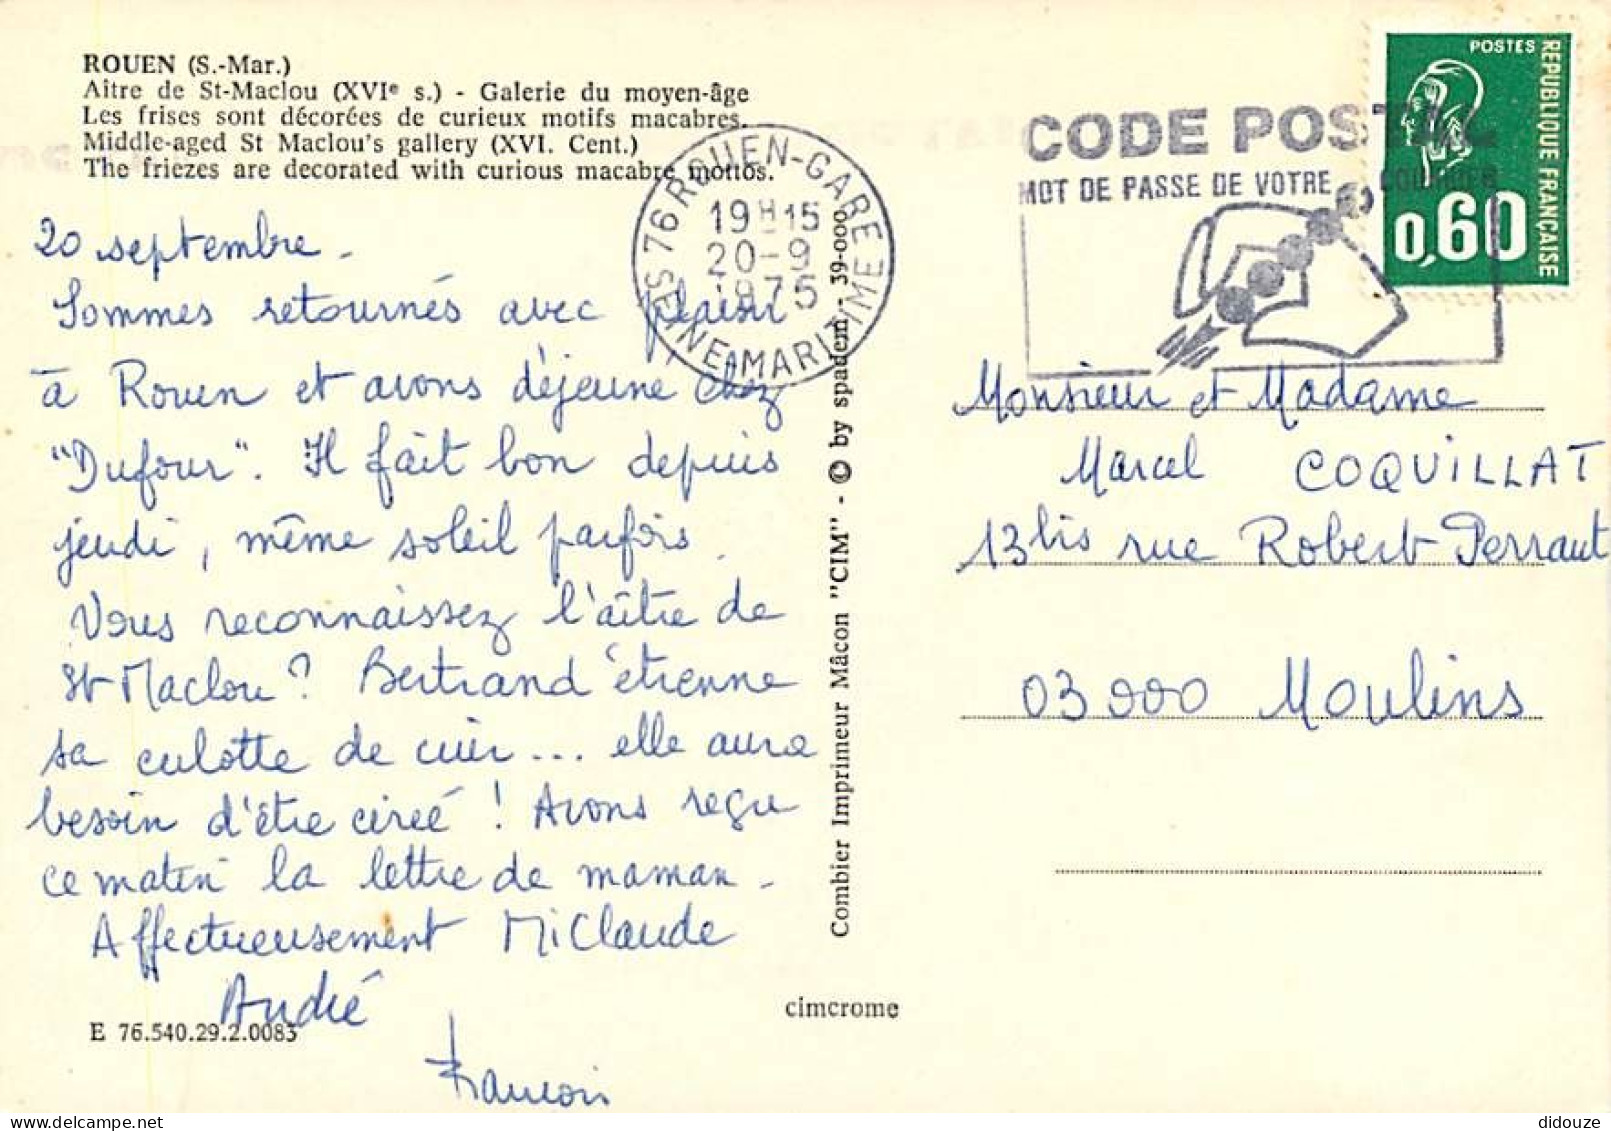 ROUEN (S.-Mar.)
Aître de St-Maclou (XVIe s.) - Galerie du moyen-âge
Les frises sont décorées de curieux motifs macabres.
Middle-aged St Maclou's gallery (XVI. Cent.)
The friezes are decorated with curious macabre mottos.
20 septembre.
Sommes retournés avec plaisir
à Rouen et avons déjeuné chez
"Dufour". Il fait bon depuis
jeudi, même soleil parfois.
Vous reconnaissez l'aître de
St Maclou? Bertrand étrenne
sa culotte de cuir... elle aura
besoin d'être cirée! Avons reçu
ce matin la lettre de maman.
Affectueusement MiClaude
André
François
E 76.540.29.2.0083
cimcrome
Combier Imprimeur Mâcon "CIM" - © by spadem - 39-000
76 ROUEN-GARE
19H15
20-9
1975
SEINE MARITIME
CODE POSTAL
MOT DE PASSE DE VOTRE COURRIER
POSTES
REPUBLIQUE FRANÇAISE
0,60
Monsieur et Madame
Marcel COQUILLAT
13bis rue Robert Perraut
03000 Moulins
didouze